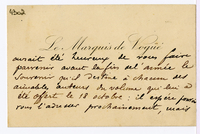 Le Marquis de Vogüé
aurait été heureux de vous faire
parvenir avant la fin de l'année le
souvenir qu'il destine à chacun des
aimables auteurs du volume qui lui a
été offert le 18 octobre ; il espère pouvoir
vous l'adresser prochainement, mais